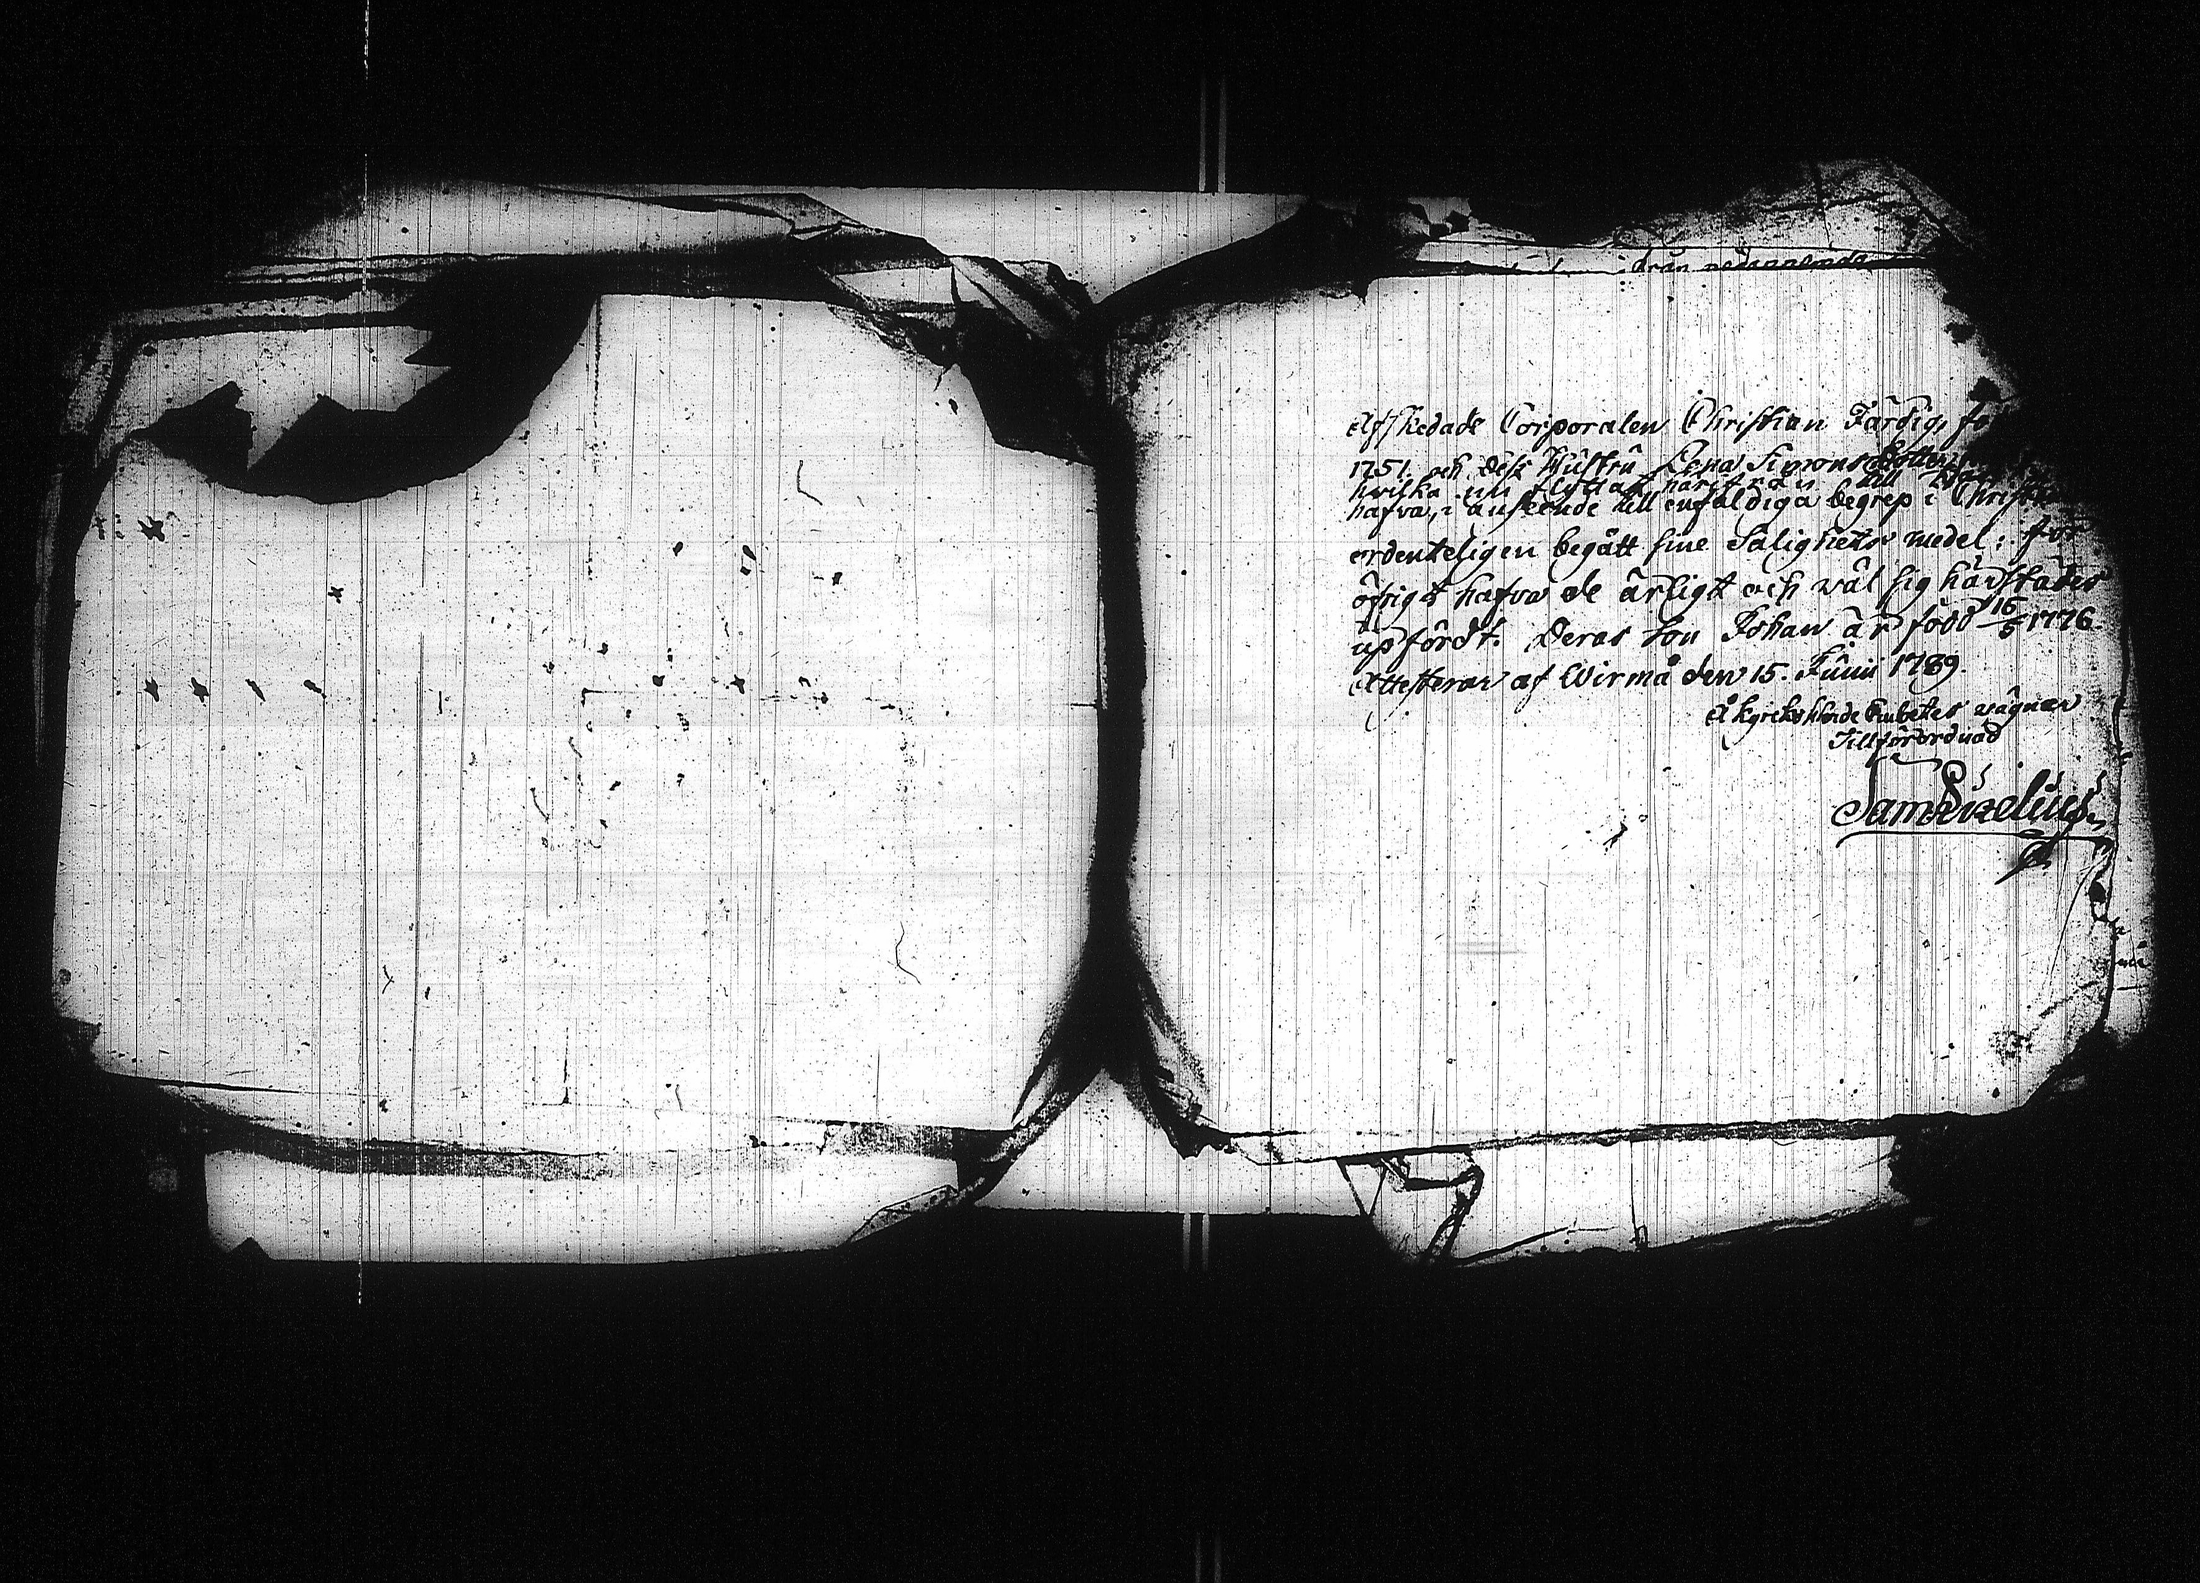 från nedannemde
Afskedade Corporalen Christian Färdig, fö
1751. och dess Hustru Lena Simons Dotter
hvilka nu flyttat härifrån till
hafva, i anseende till enfaldiga begrep i Christen
ordenteligen begått sine Salighets medel: för
öfrigt hafva de ärligt och väl sig härstädes
upfördt. Deras Son Johan är född 16/5 1776.
Attesterar af Wirmå den 15. Junii 1789.
Å Kyrkoherde Embetes vägnar
Tillförordnad
Sam